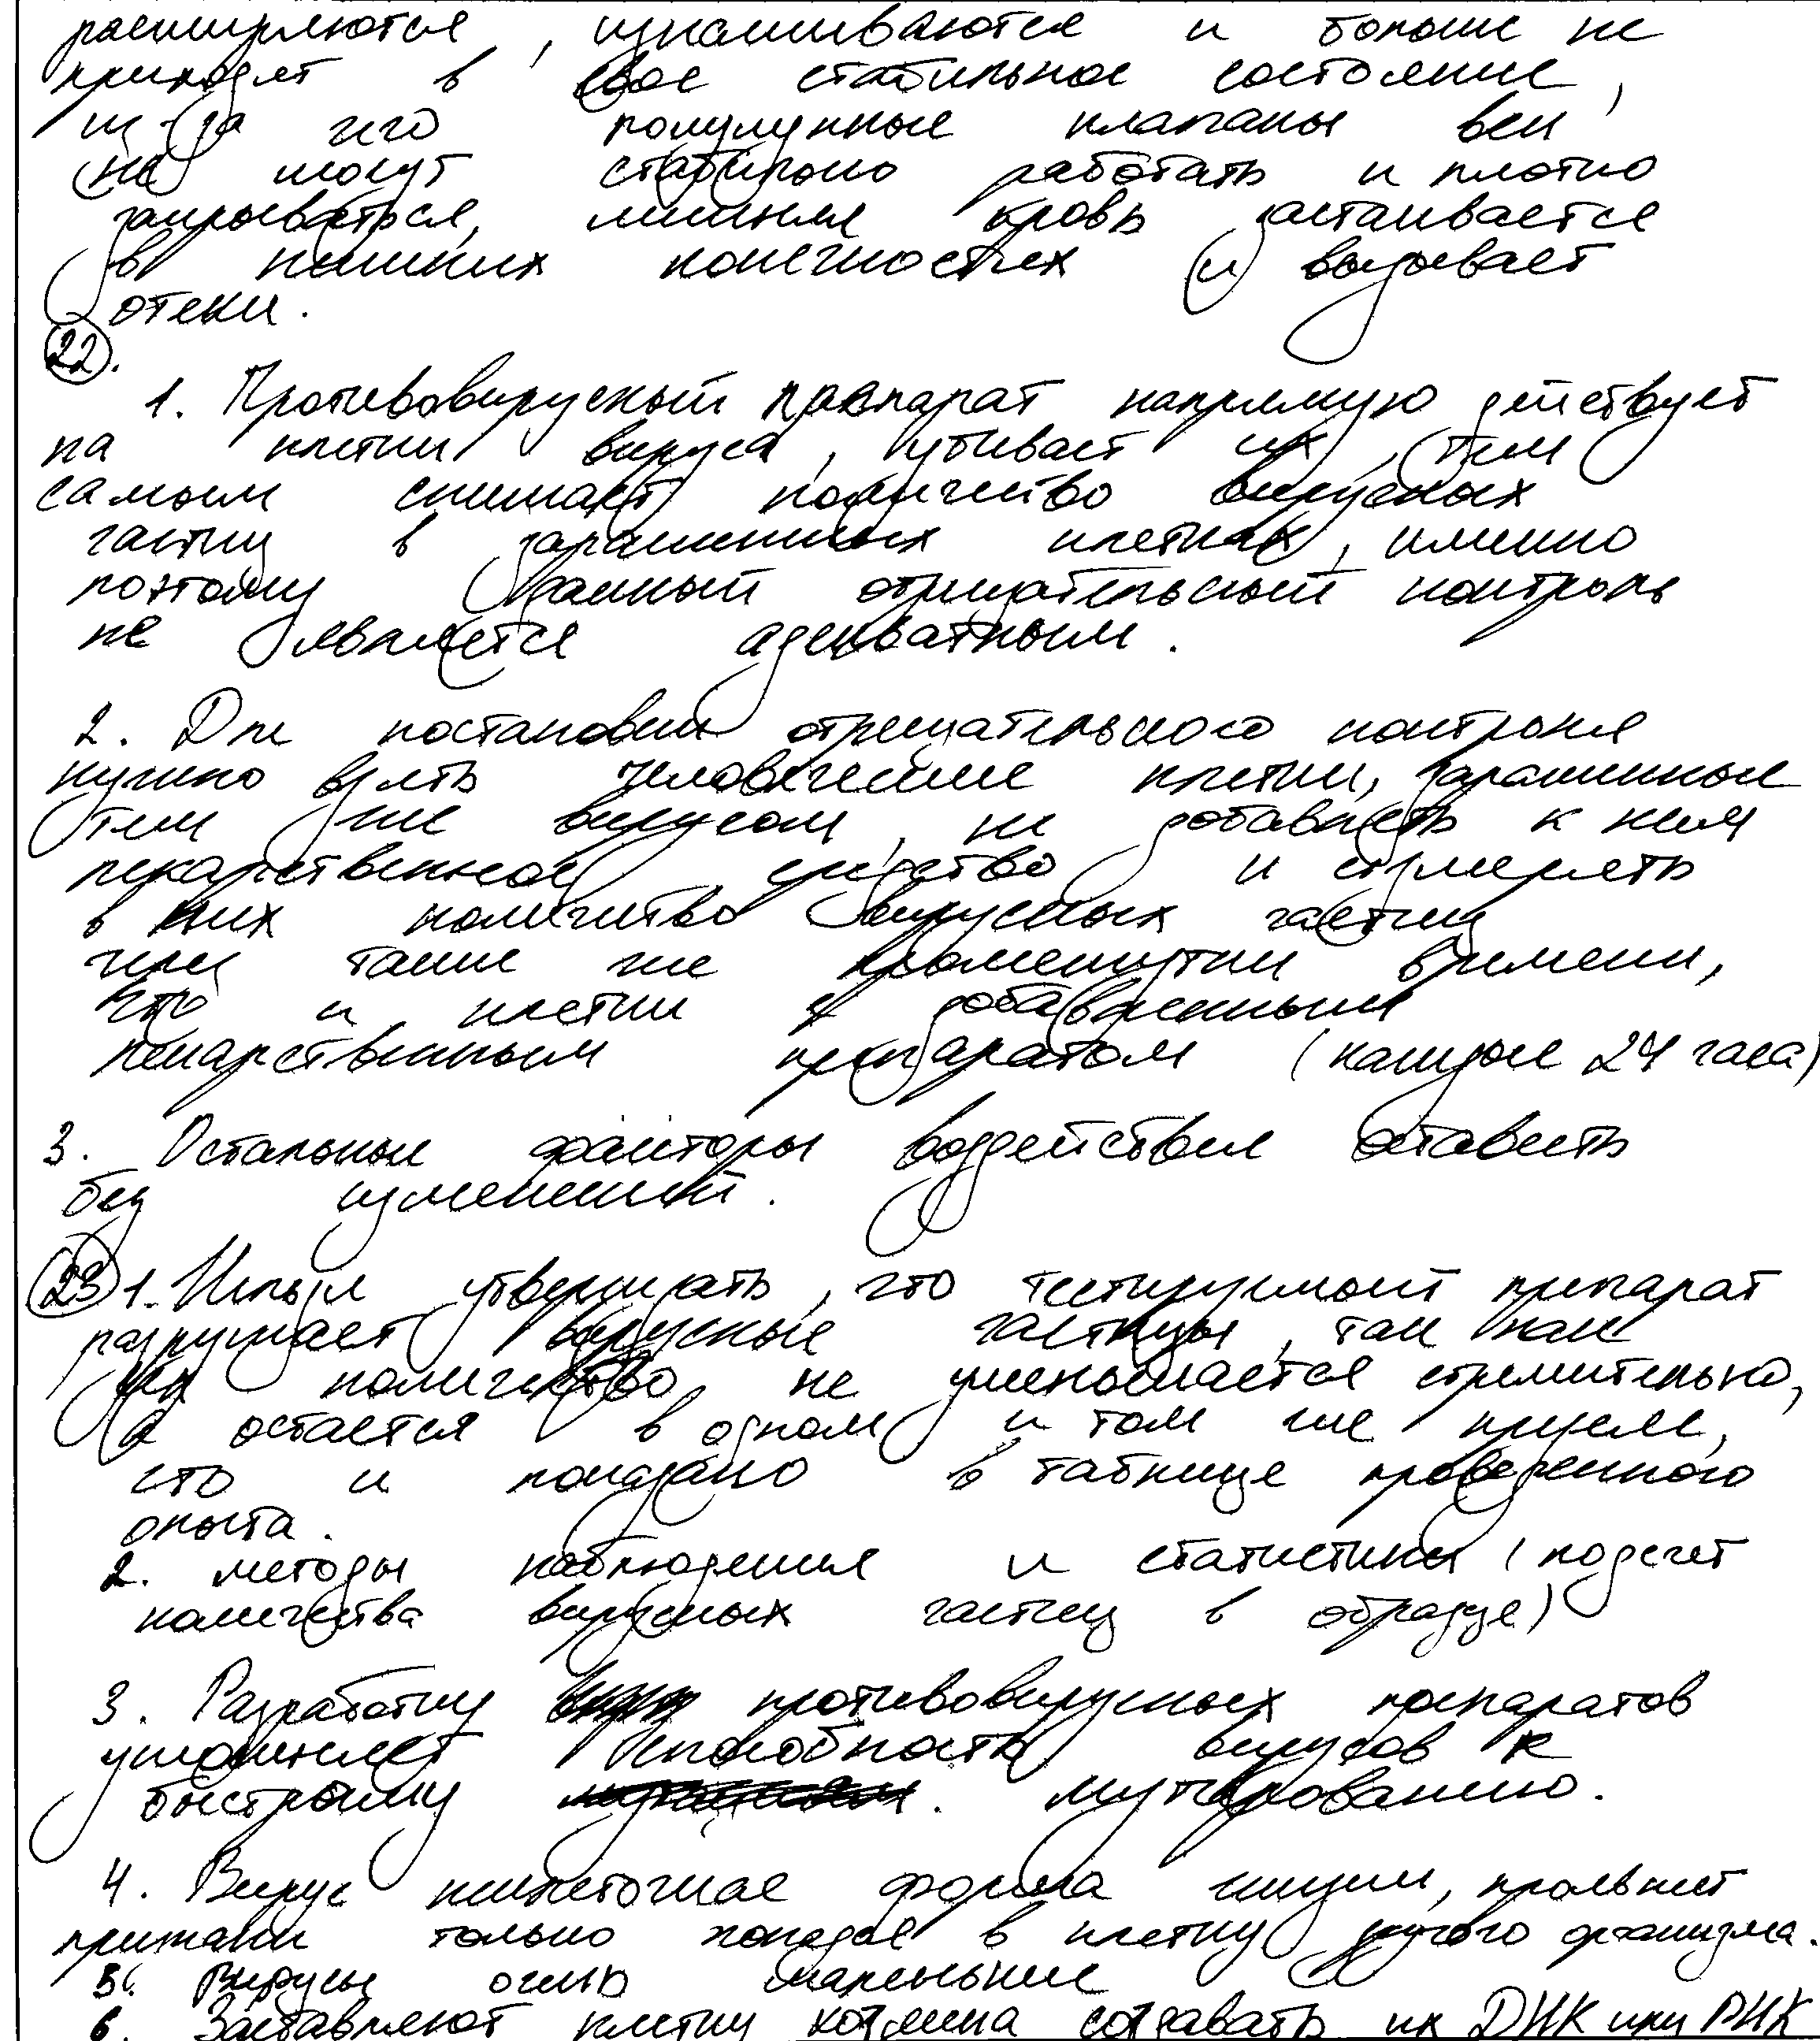 расширяются, изнашиваются и больше не
приходят в свое стабильное состояние,
из-за чего полулунные клапаны вен
не могут стабильно работать и плотно
закрываться, лишняя кровь застаивается
в нижних конечностях и вызывает
отеки.
22.
1. Противовирусный препарат напрямую действует
на клетки вируса, убивает их, тем
самым снижает количество вирусных
частиц в зараженных клетках, именно
поэтому данный отрицательный контроль
не является адекватным.
2. Для постановки отрицательного контроля
нужно взять человеческие клетки, зараженные
тем же вирусом, не добавлять к ним
лекарственное средство и измерять
в них количество вирусных частиц
через такие же промежутки времени,
что и клетки с добавленным
лекарственным препаратом (каждые 24 часа)
3. Остальные факторы воздействия оставить
без изменений.
23 1. Нельзя утверждать, что тестируемый препарат
разрушает вирусные частицы, так как
их количество не уменьшается стремительно,
а остается в одном и том же пределе,
что и показано в таблице проведенного
опыта.
2. методы наблюдения и статистики (подсчет
количества вирусных частиц в образце)
3. Разработку противовирусных препаратов
усложняет способность вирусов к
быстрому мутированию.
4. Вирус неклеточная форма жизни, проявляет
признаки только попадая в клетку другого организма.
5. Вирусы очень маленькие
6. Заставляют клетку хозяина создавать их ДНК или РНК